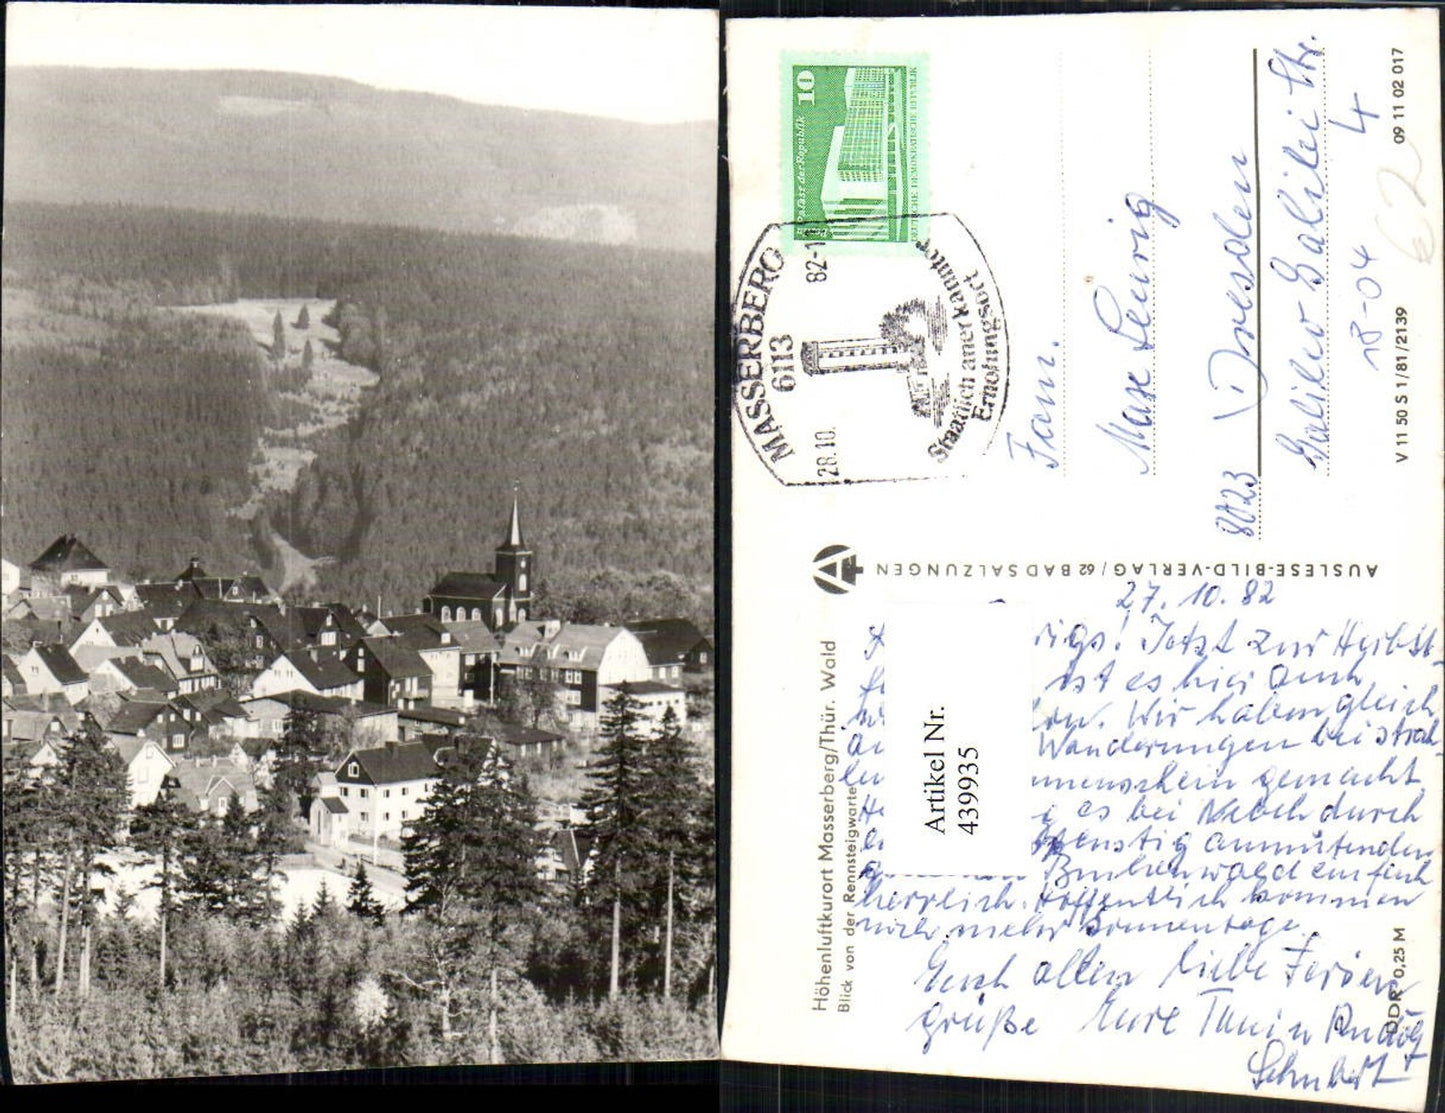 10
Palast der Republik
DEUTSCHE DEMOKRATISCHE REPUBLIK
MASSERBERG
6113
28.10.
82-1
Staatlich anerkannter
Erholungsort
Fam.
Max
8023 Dresden
Galileo Galilei Str.
4
18-04
62
09 11 02 017
V 11 50 S 1/81/2139
AUSLESE-BILD-VERLAG/62 BAD SALZUNGEN
Höhenluftkurort Masserberg/Thür. Wald
Blick von der Rennsteigwarte
DDR 0,25 M
Artikel Nr.
439935
27.10.82
Jetzt zur Herbst-
ist es hier auch
Wir haben gleich
Wanderungen bei strah-
gemacht,
es bei Nebel durch
anmutenden
Buchenwald einfach
herrlich. Hoffentlich kommen
noch mehr Sonnentage.
Euch allen liebe Ferien-
grüße Eure Rudolf
Schubert